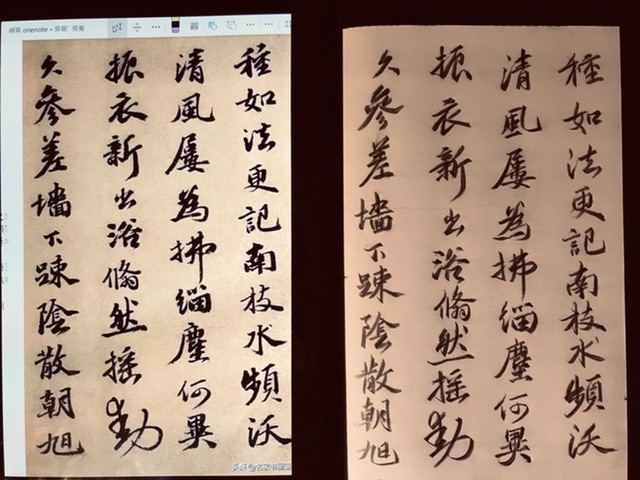 onenote
種如法更記南枝水頻沃
清風屢為拂緇塵何異
振衣新出浴翛然搖動
久參差墻下踈陰散朝旭
头条@名家书画
種如法更記南枝水頻沃
清風屢為拂緇塵何異
振衣新出浴翛然搖動
久參差墻下踈陰散朝旭